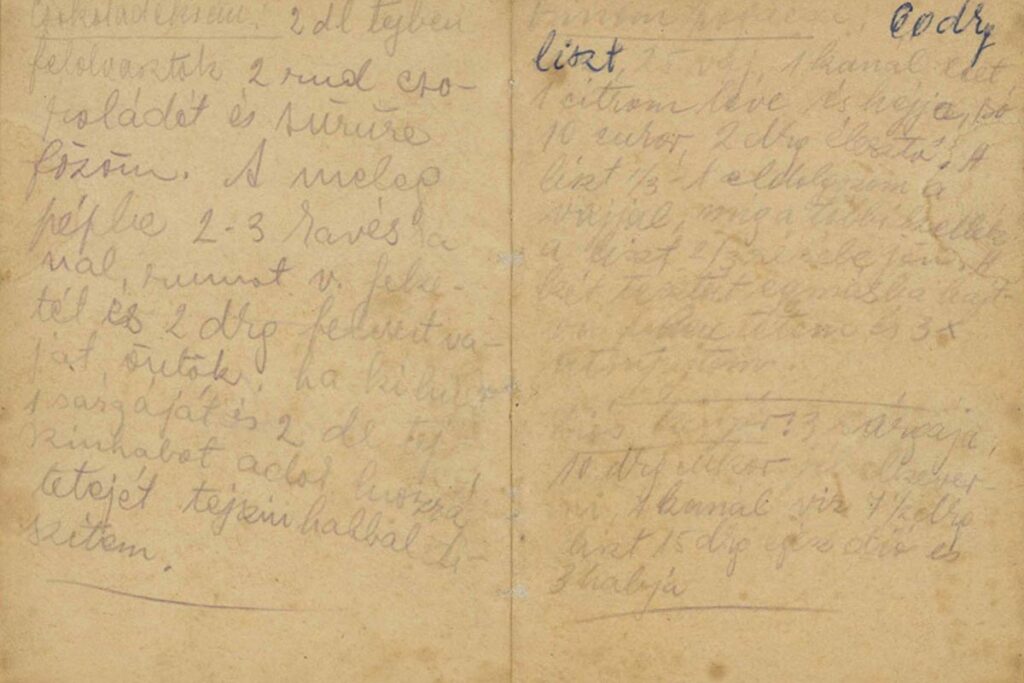 Csokoládékrém. 2 dl tejben
felolvasztok 2 rud cso-
koládét és sűrűre
főzöm. A meleg
pépbe 2-3 kávéska
nál, rumot v. feke-
tél és 2 dkg felvert va-
jat, öntök, ha kihűl
1 sárgáját és 2 dl tej-
szinhabot adok hozzá
tetejét tejszinhabbal di-
szitem.
60 dkg
liszt, 25 vaj, 1 kanál ecet
1 citrom leve és héja, só
10 cukor, 2 dkg élesztő. A
liszt 1/3-1 eldolgozom a
vajjal, mig a többi kellék
a liszt 2/3
két tésztát egymásba hajt-
és 3x
3 sárgája,
10 dkg cukor elkever-
ni, 1 kanál viz 7 1/2 dkg
liszt 15 dkg dió és
3 habja